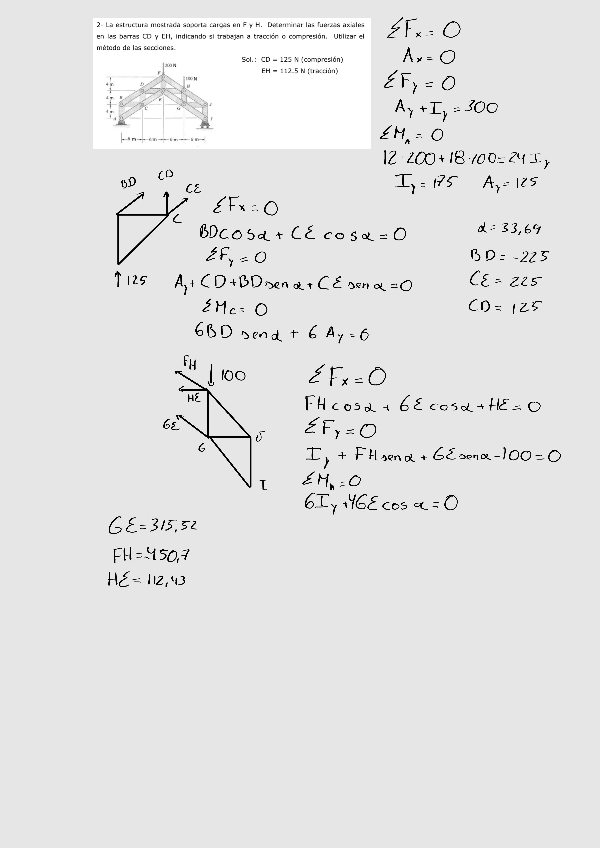 2- La estructura mostrada soporta cargas en F y H. Determinar las fuerzas axiales
en las barras CD y EH, indicando si trabajan a tracción o compresión. Utilizar el
método de las secciones.
Sol.: CD = 125 N (compresión)
EH = 112.5 N (tracción)
200 N
100 N
4 m
4 m
4 m
6 m 6 m 6 m 6 m
ΣFx = 0
Ax = 0
ΣFy = 0
Ay + Iy = 300
ΣMA = 0
12·200 + 18·100 = 24 Iy
Iy = 175 Ay = 125
BD
CD
CE
C
↑ 125
ΣFx = 0
BD cos α + CE cos α = 0
ΣFy = 0
Ay + CD + BD sen α + CE sen α = 0
ΣMc = 0
6BD sen α + 6 Ay = 0
α = 33,69
BD = -225
CE = 225
CD = 125
FH
100
HE
GE
G
J
I
ΣFx = 0
FH cos α + GE cos α + HE = 0
ΣFy = 0
Iy + FH sen α + GE sen α - 100 = 0
ΣMh = 0
6Iy + 4GE cos α = 0
GE = 315,52
FH = -450,7
HE = 112,43